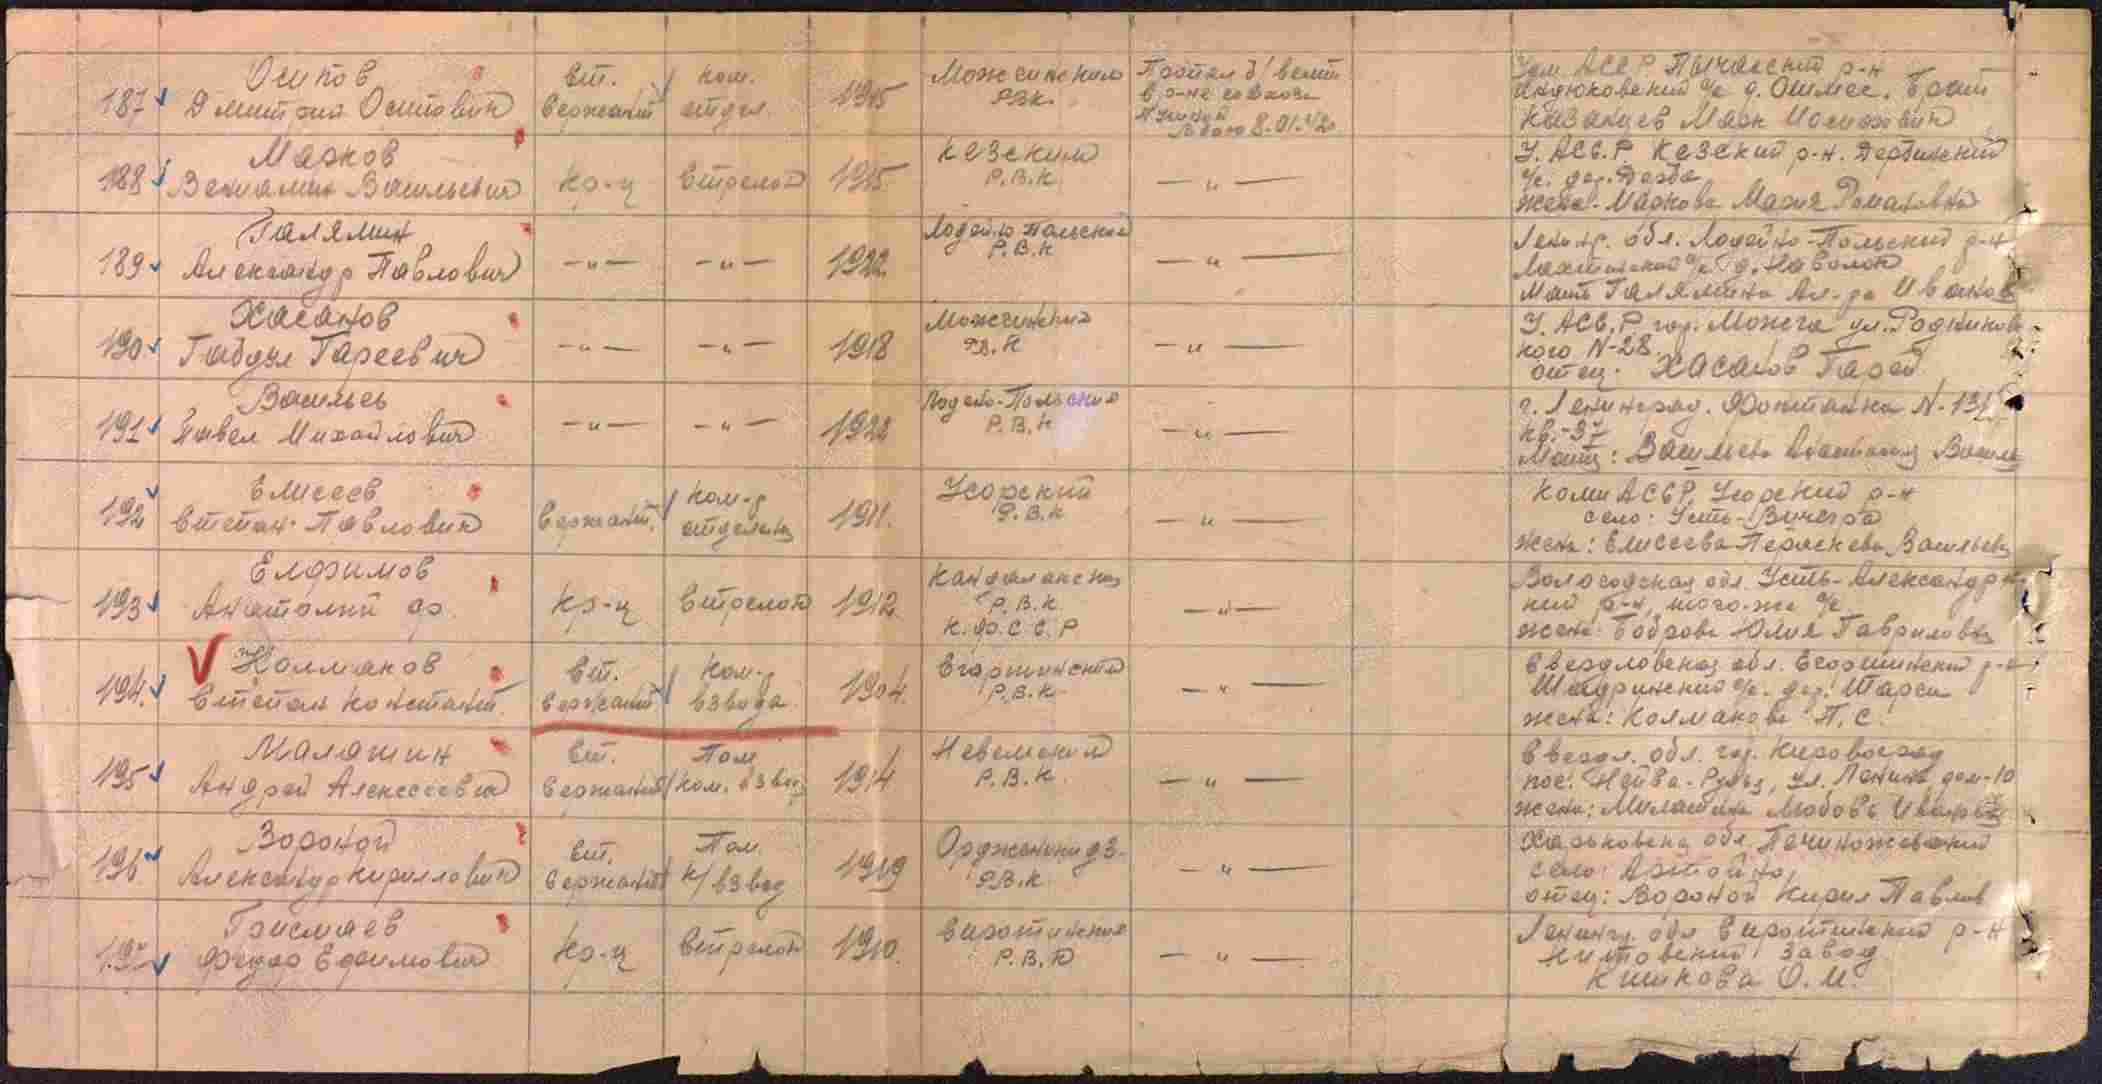 187 Осипов Дмитрий Осипович Ст. Сержант ком. отдел. 1915 Можгинский РВК. Пропал б/вести в р-не совхоза 8.01.42
Удм. АССР Пычасский р-н
с/с д. Брат
Казанцев Марк Иосифович
188 Марков Вениамин Васильевич Кр-ц Стрелок 1915 Кезский Р.В.К. — " —
У. АСС.Р. Кезский р-н.
с/с. дер.
жена - Маркова Мария Романовна
189 Галямин Александр Павлович — " — — " — 1922 Лодейно Польский Р.В.К — " —
Ленингр. обл. Лодейно-Польский р-н
с/с д. Наволок
Мать Галямина Ал-ра Иванов
190 Хасанов Габдул Гареевич — " — — " — 1918 Можгинский Р.В.К — " —
У. АСС.Р. гор. Можга ул. Родников
ного N-28
отец. Хасанов Гарей
191 Васильев Павел Михайлович — " — — " — 1922 Лодейно-Польский Р.В.К — " —
г. Ленинград. Фонтанка N-131
кв.-37
Мать: Васильева Анастасия Василь
192 Елисеев Степан Павлович Сержант. ком-р отделения 1911. Усорский Р.В.К — " —
Коми АССР, Усорский р-н
село: Усть-Вычегда
жена: Елисеева Пераскева Васильевн
193 Елфимов Анатолий Ф. Кр-ц Стрелок 1912. Кандалакский Р.В.К. К.Ф.С.С.Р — " —
Вологодская обл. Усть-Александр
ский р-н, того-же с/с
жена: Боброва Юлия Гавриловна
194. Колмаков Степан Констант. Ст. Сержант Ком-р взвода. 1904. Егоршинский Р.В.К. — " —
Свердловская обл. Егоршинский р-н
с/с. дер.
жена: Колмакова П.С.
195 Малашин Андрей Алексеевич Ст. Сержант Пом. ком. взвод 1914 Невемский Р.В.К. — " —
Свердл. обл. гор. Кировоград
пос. Нейва-Рудн, ул. Ленина дом-10
жена: Милашина Любовь Ивановна
196 Вороной Александр Кириллович Ст. Сержант Пом. к/взвод 1919 Орджоникидз. Р.В.К. — " —
Харьковская обл.
село:
отец: Вороной Кирил Павлов
197 Грисмаев Федор Ефимович Кр-ц Стрелок 1910. Сиротинский Р.В.К — " —
Ленингр. обл Сиротинский р-н
завод
Кишкова О.И.